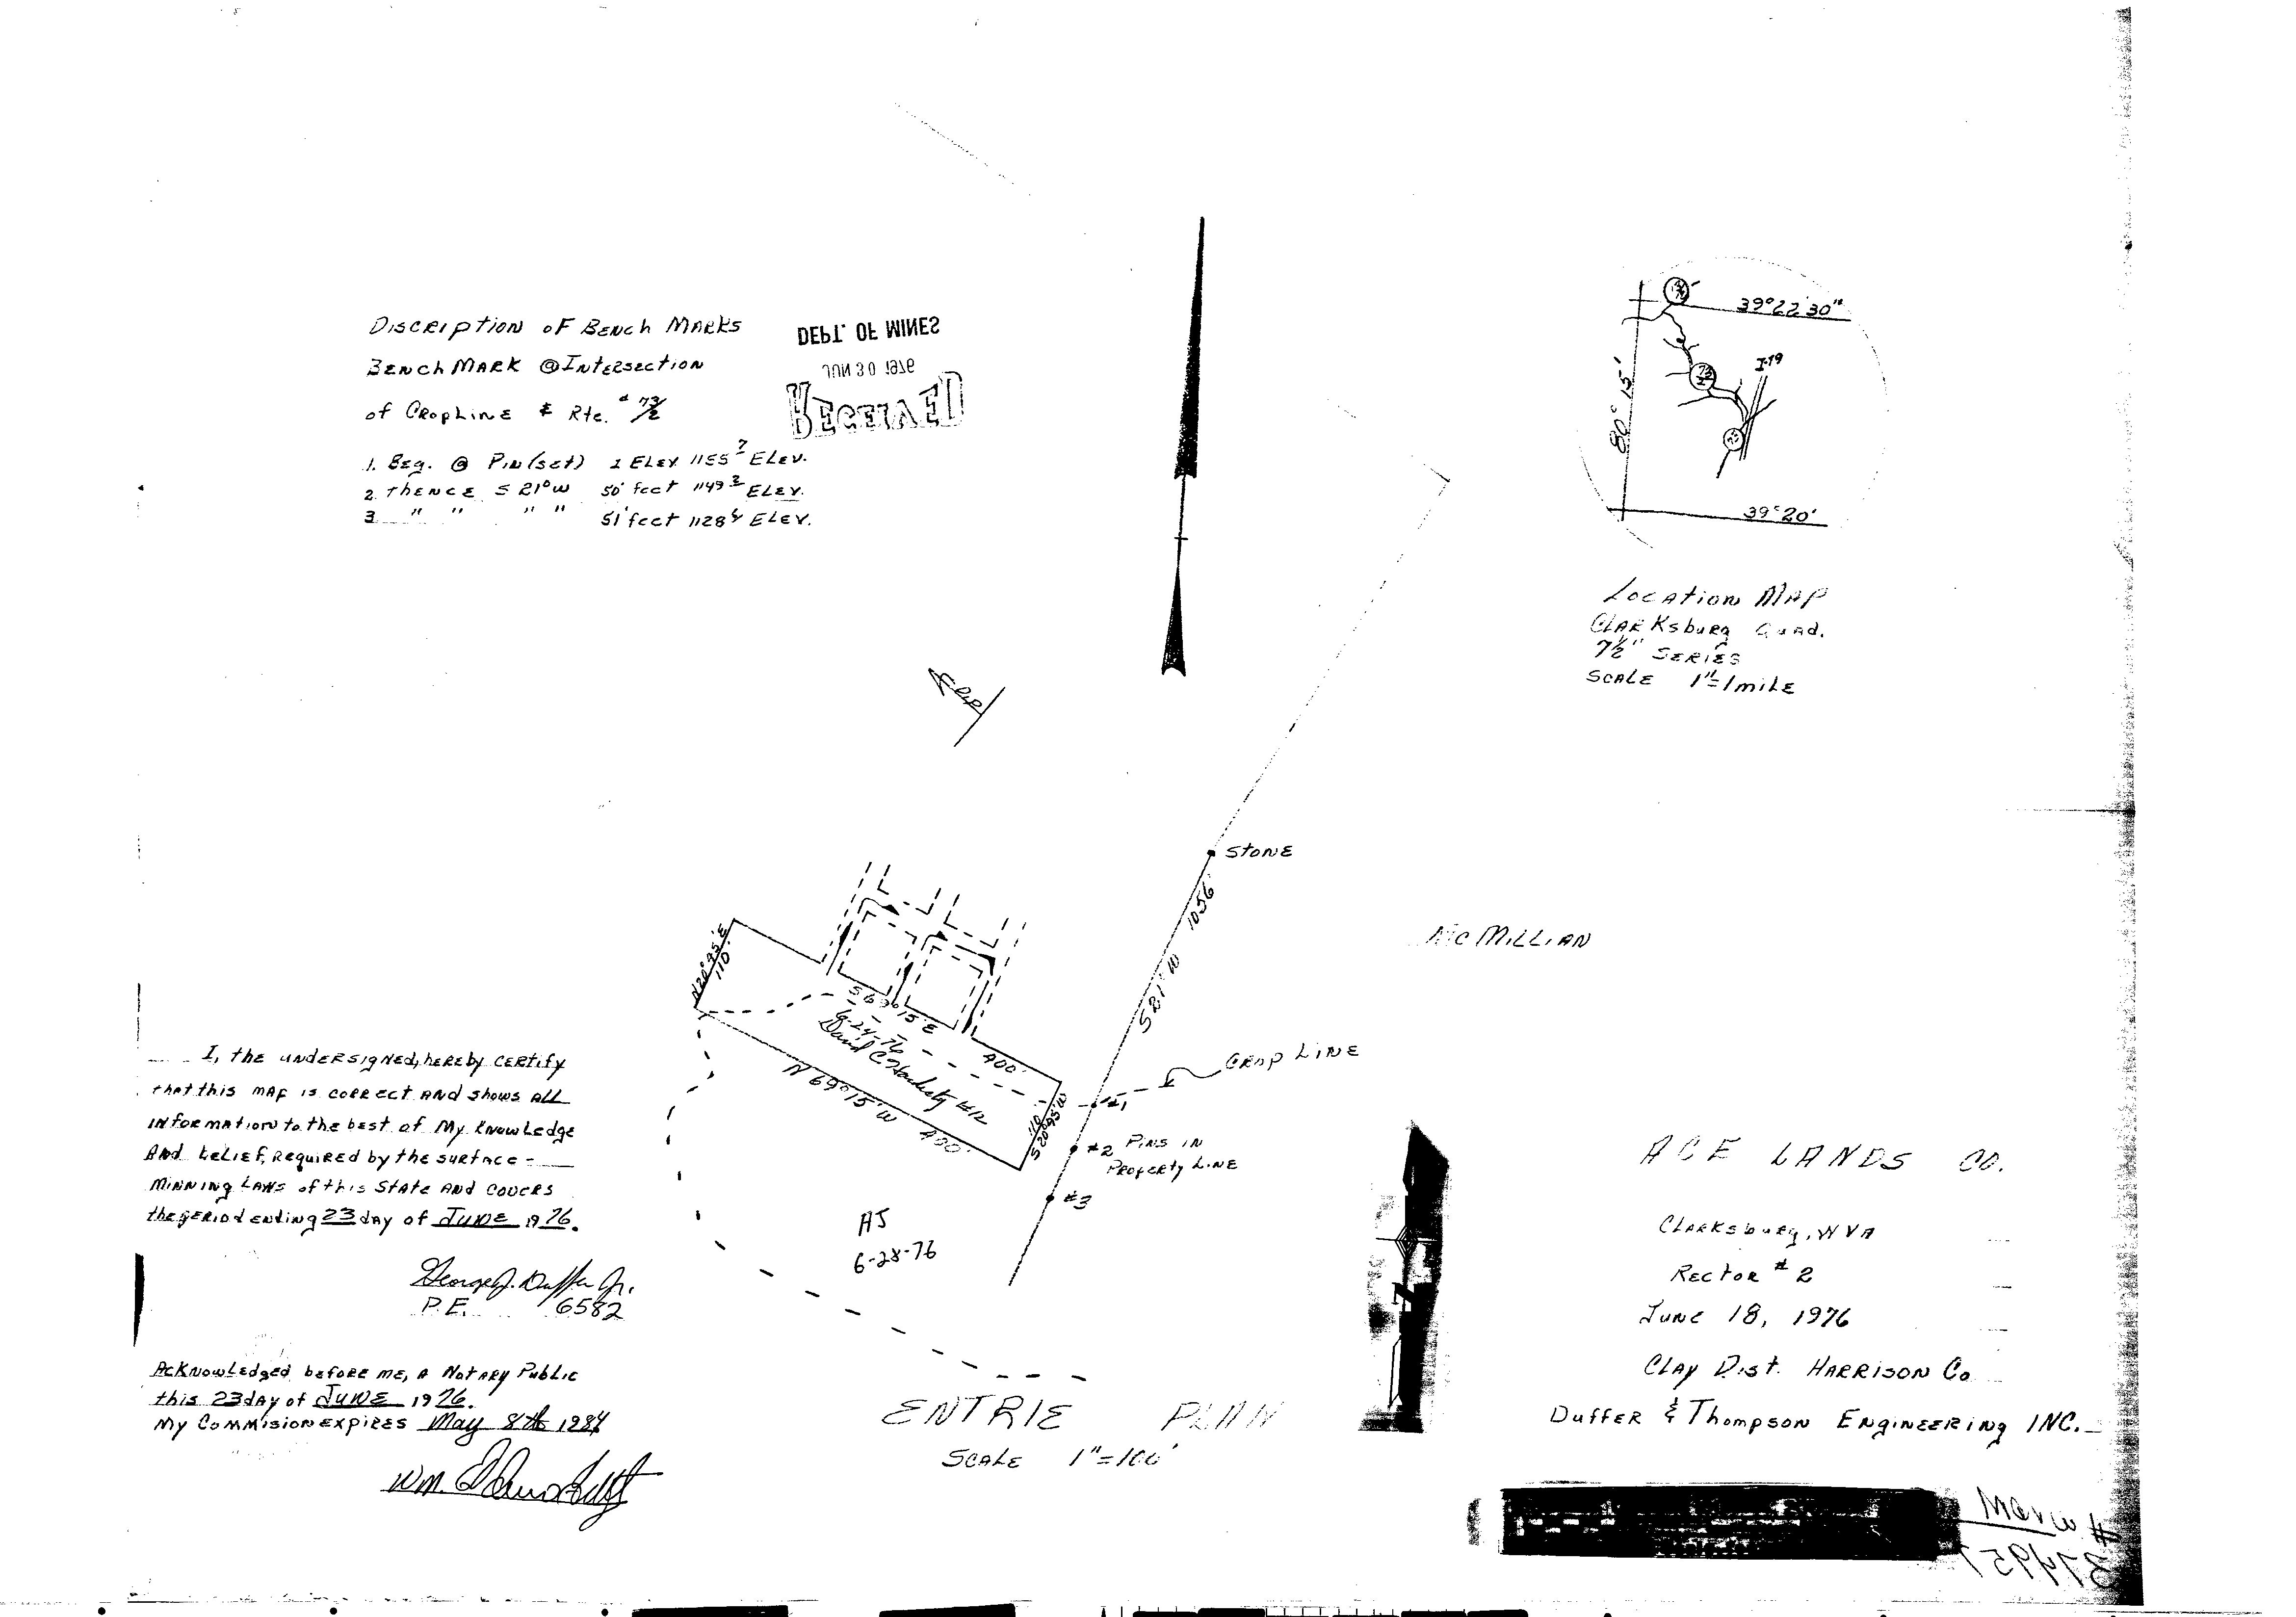 Discription of Bench Marks
Bench Mark @ Intersection
of CropLine & Rte. # 73/2
1. Beg. @ Pin (set) 1 Elev 1155 7 Elev.
2. Thence S 21° W 50' feet 1149 3 Elev.
3 " " " " 51' feet 1128 4 Elev.
DEPT. OF MINES
JUN 30 1976
RECEIVED
39° 22' 30"
I-79
73/2
80° 15'
39° 20'
Location Map
Clarksburg Quad.
7½" Series
Scale 1"=1 mile
Stone
1056'
S 21° W
McMillian
Crop Line
#1
#2 Pins in
Property Line
#3
110'
S 69° 15' E
400'
6-24-76
N 69° 15' W 400'
110
AJ
6-28-76
I, the undersigned, hereby certify
that this map is correct and shows all
information to the best of my knowledge
and belief, required by the surface-
minning laws of this State and covers
the period ending 23 day of June 1976.
George J. Duffer Jr.
P.E. 6582
Acknowledged before me, a Notary Public
this 23 day of June 1976.
My Commision expires May 8th 1984
Wm.
Entrie Plan
Scale 1"=100'
Ace Lands Co.
Clarksburg, WVA
Rector # 2
June 18, 1976
Clay Dist. Harrison Co
Duffer & Thompson Engineering Inc.